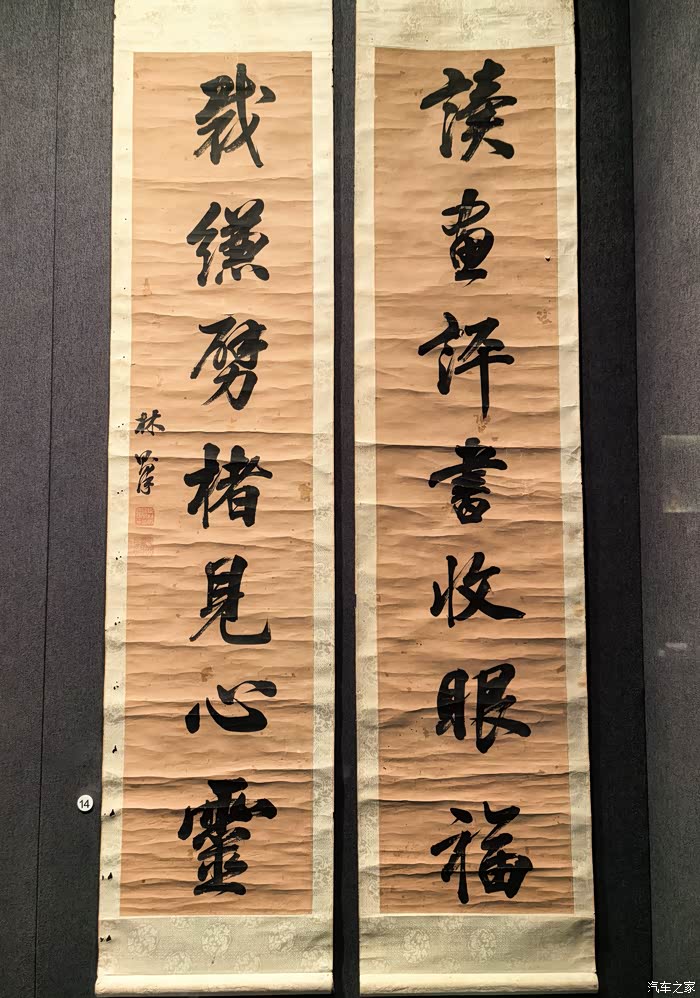 讀畫評書收眼福
裁縑劈楮見心靈
林
14
汽车之家